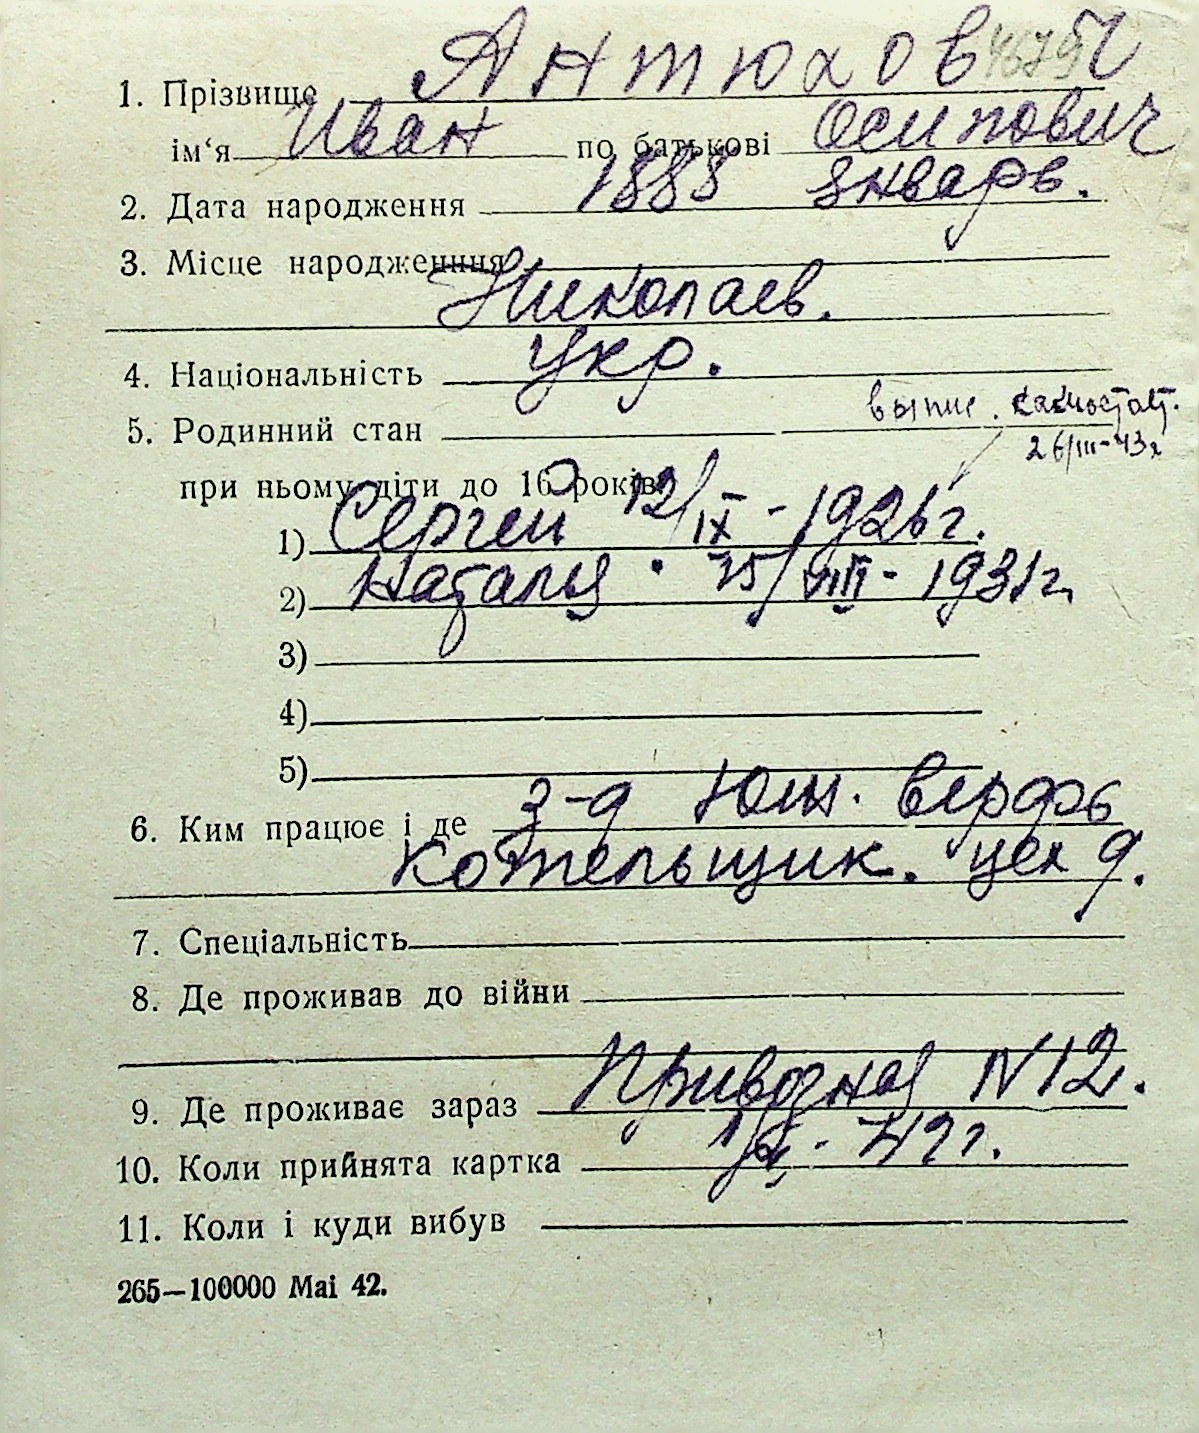 1. Прізвище Антюхов 4679
ім‘я Иван по батькові Осипович
2. Дата народження 1888 январь.
3. Місце народженння
Николаев.
4. Національність Укр.
выпис.
5. Родинний стан
26/III-43г
при ньому діти до 16 років
1) Сергей 12/IX - 1926г.
2) Наталья . 25/VIII - 1931г.
3)
4)
5)
6. Ким працює і де з-д Юж. верфь
Котельщик. цех 9.
7. Спеціальність
8. Де проживав до війни
9. Де проживає зараз Приводная N 12.
10. Коли прийнята картка 42г.
11. Коли і куди вибув
265—100000 Mai 42.